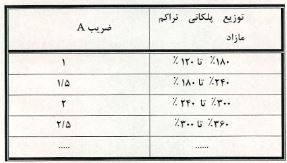 توزیع پلکانی تراکم ضریب A
مازاد
۱۸۰٪ تا ۱۲۰٪ ۱
۲۴۰٪ تا ۱۸۰٪ ۱/۵
۳۰۰٪ تا ۲۴۰٪ ۲
۳۶۰٪ تا ۳۰۰٪ ۲/۵
...... .....